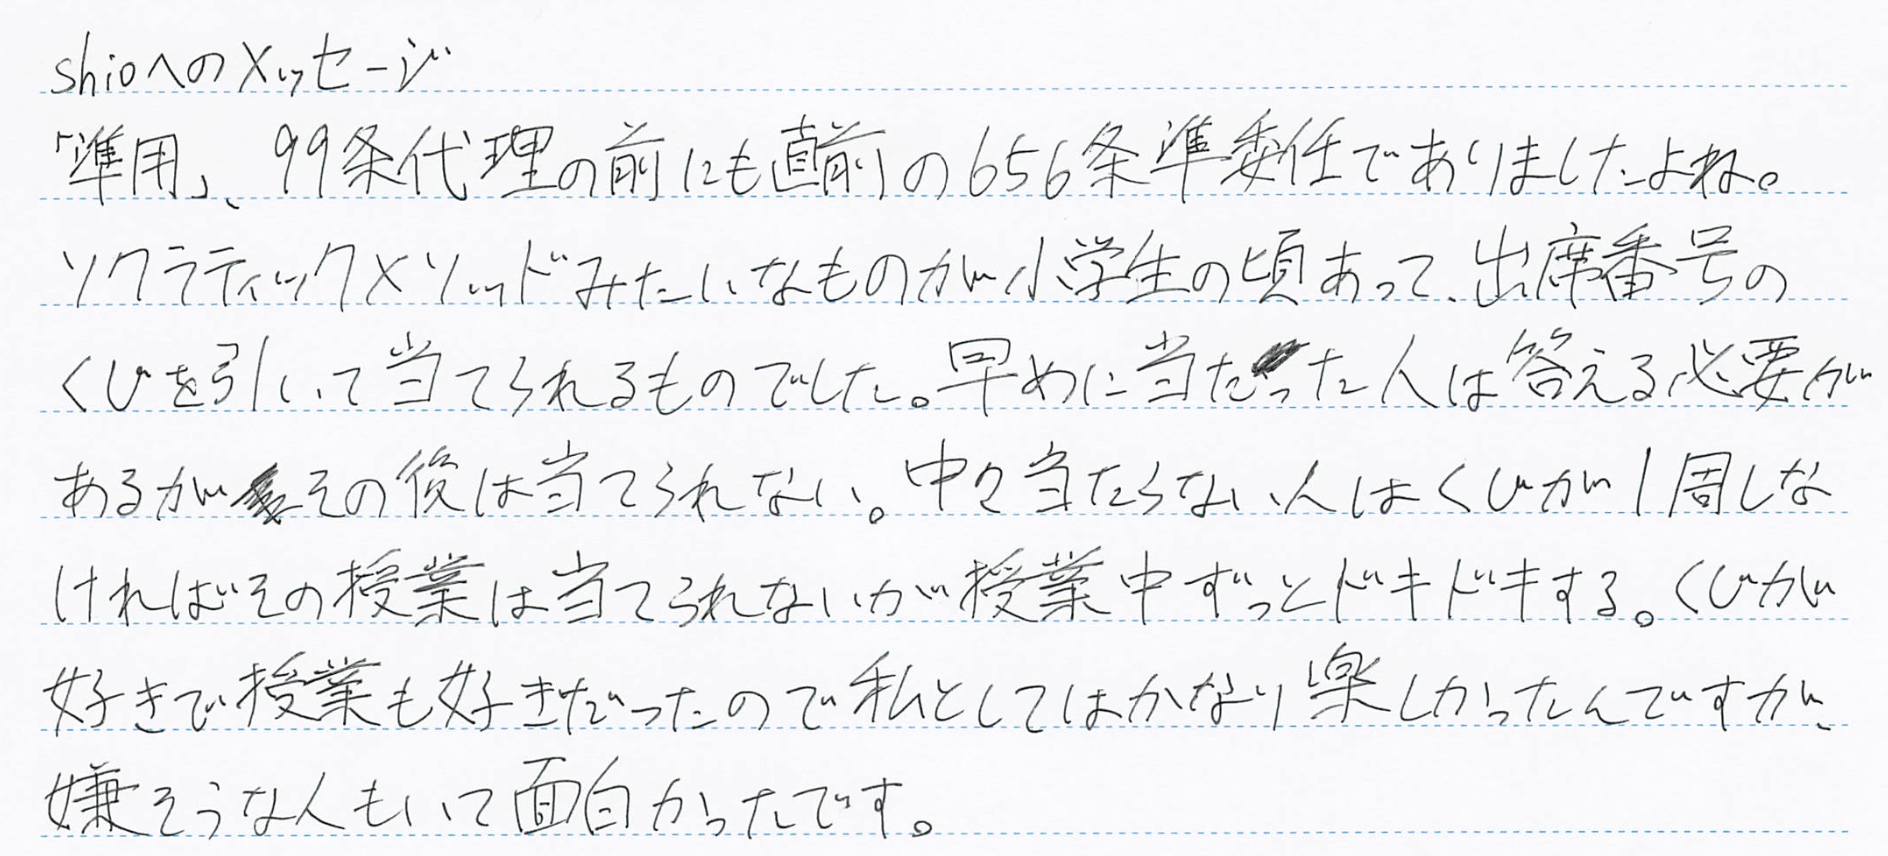 shioへのメッセージ
「準用」、99条代理の前にも直前の656条準委任でありましたよね。
ソクラティックメソッドみたいなものが小学生の頃あって、出席番号の
くじを引いて当てられるものでした。早めに当たった人は答える必要が
あるがその後は当てられない。中々当たらない人はくじが1周しな
ければその授業は当てられないが授業中ずっとドキドキする。くじが
好きで授業も好きだったので私としてはかなり楽しかったんですが、
嫌そうな人もいて面白かったです。